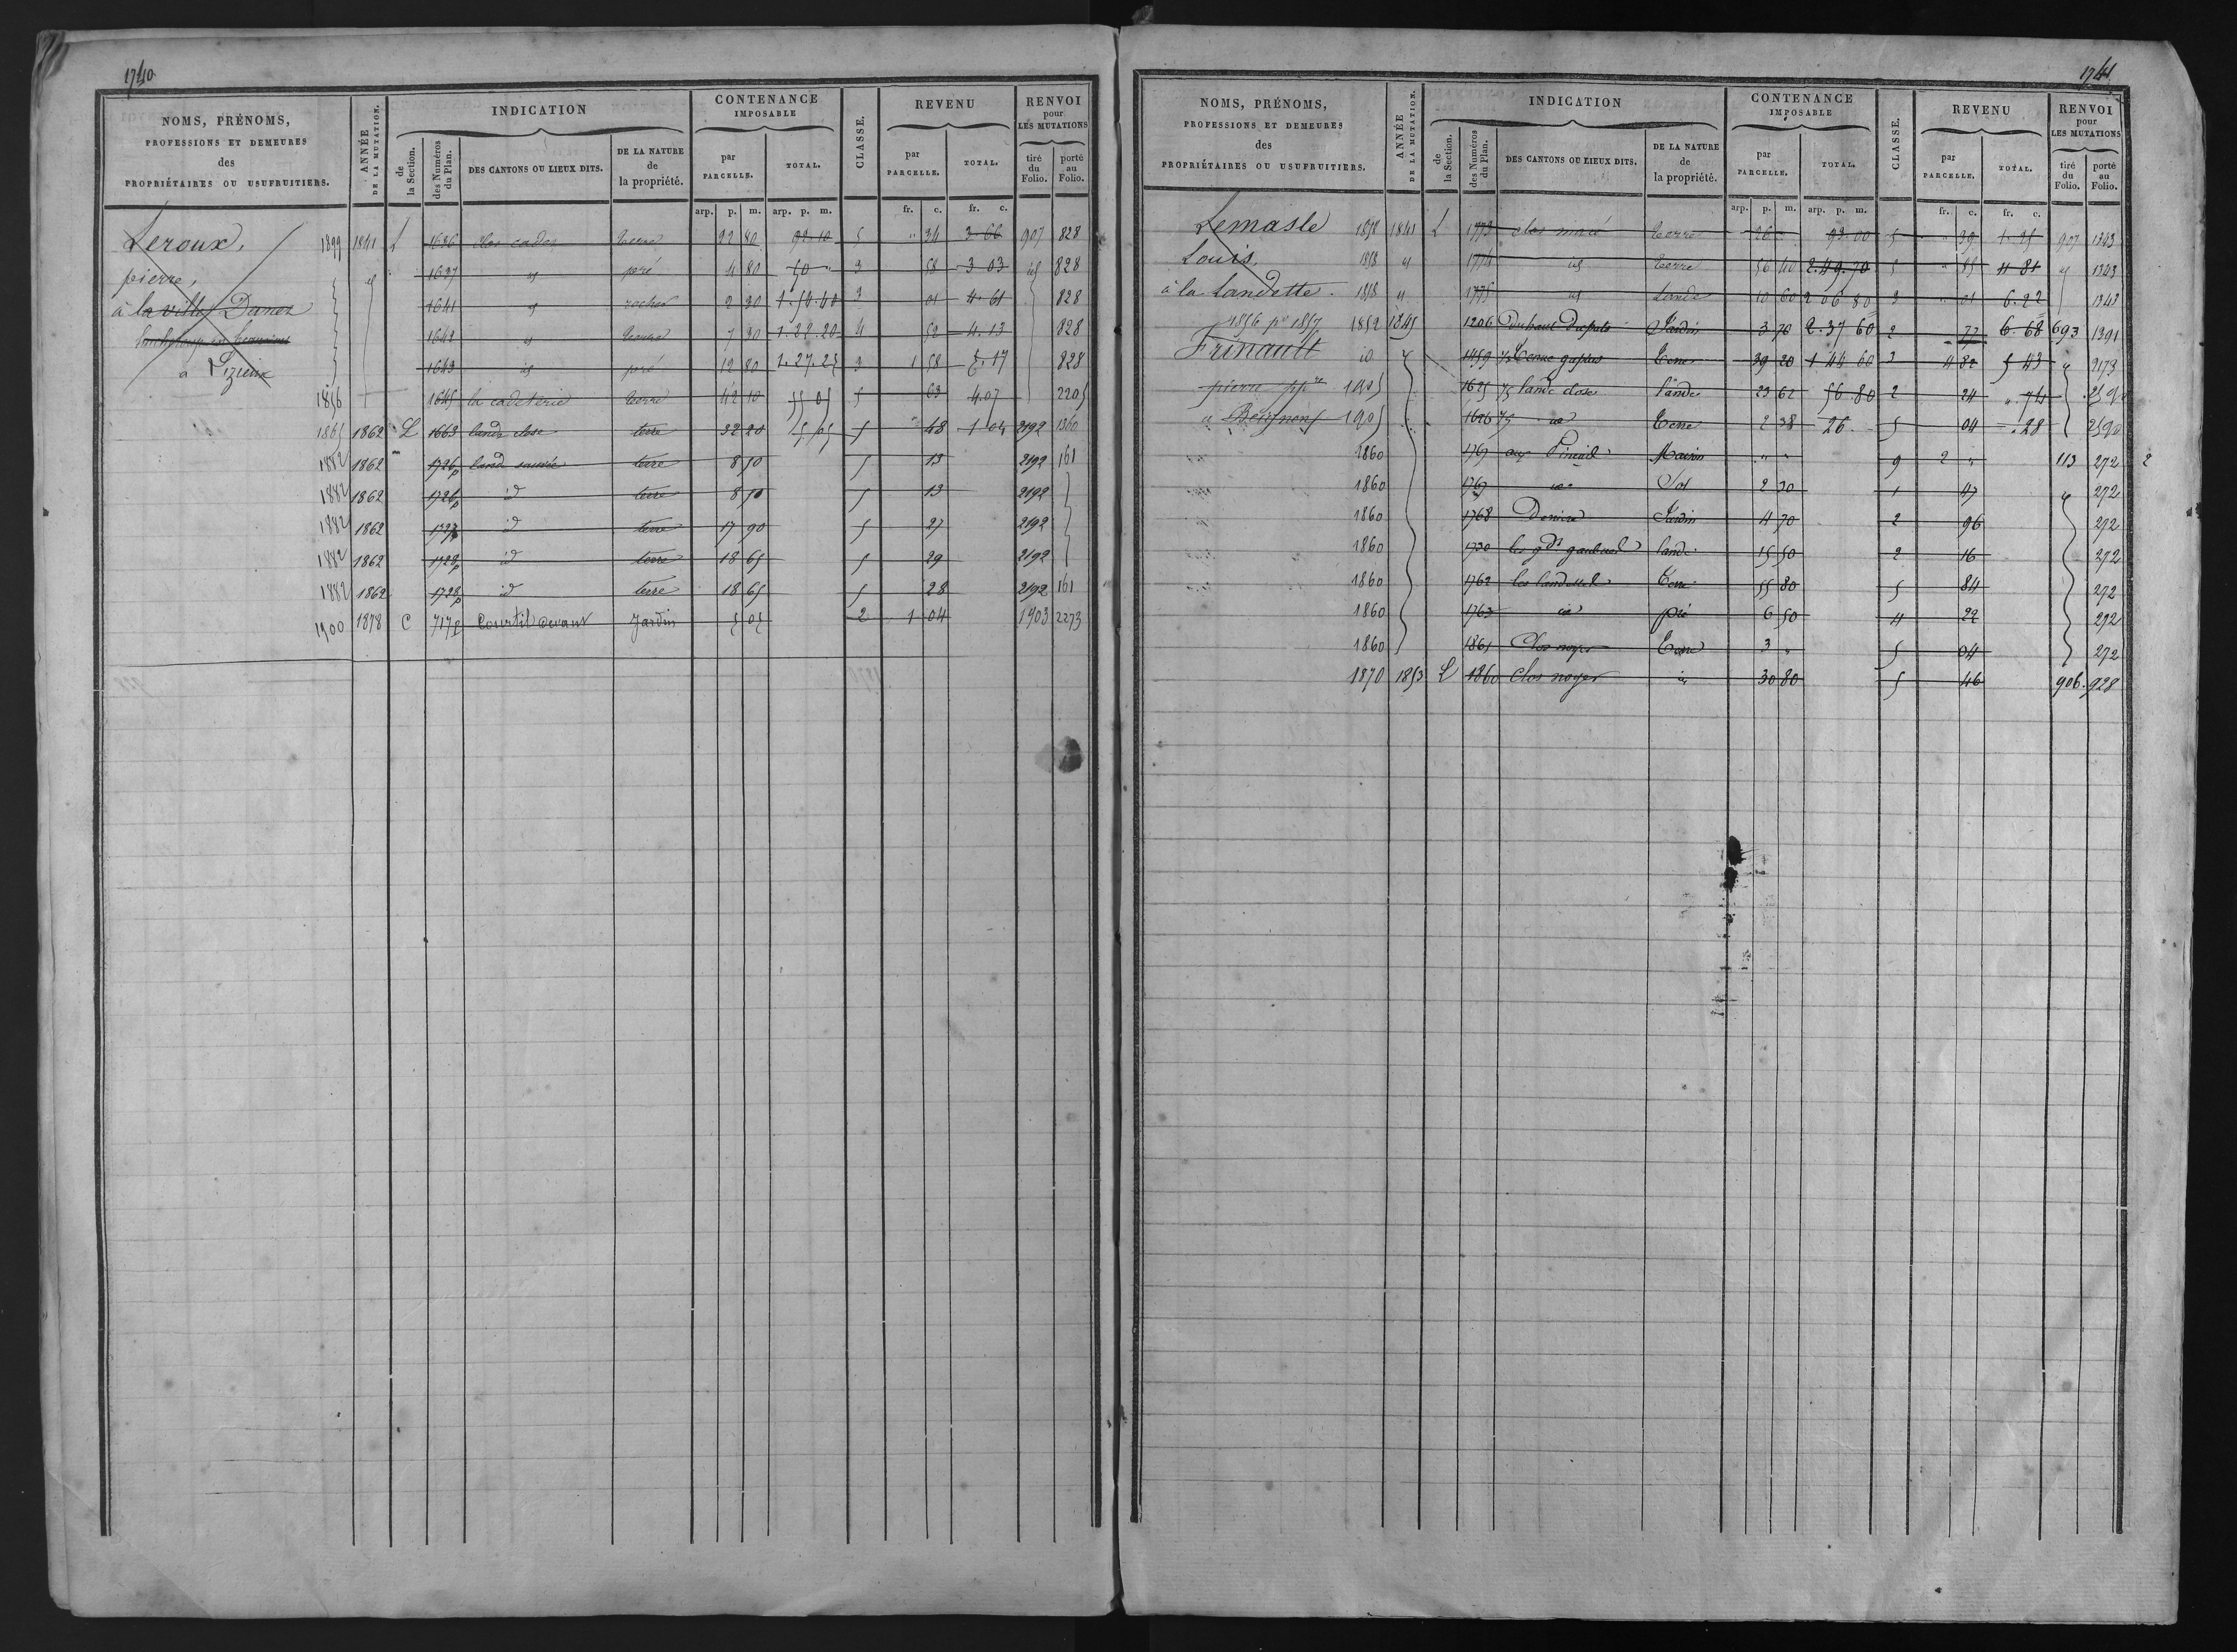 1740
NOMS, PRÉNOMS, PROFESSIONS ET DEMEURES des PROPRIÉTAIRES OU USUFRUITIERS.
ANNÉE DE LA MUTATION.
INDICATION
de la Section.
des Numéros du Plan.
DES CANTONS OU LIEUX DITS.
DE LA NATURE de la propriété.
CONTENANCE IMPOSABLE
par PARCELLE.
TOTAL.
CLASSE.
REVENU
par PARCELLE.
TOTAL.
RENVOI pour LES MUTATIONS
tiré du Folio.
porté au Folio.
arp. p. m. arp. p. m. fr. c. fr. c.
Leroux, 1899 1841 L 1636 clos cades terre 22 80 92 10 5 " 34 3 66 907 828
pierre, id 1637 id pré 4 80 50 " 3 58 3 03 id 828
à la ville Danet 1641 id rocher 2 30 1.54.40 3 01 4.61 828
1642 id 7 30 1.22.20 4 52 4.13 828
à Lizieux 1643 id pré 12 80 1.27.25 3 1 58 5.17 828
1856 1645 la cadeterie terre 42 10 55 05 5 63 4.07 2205
1865 1862 L 1663 lande close terre 32 20 5 05 5 48 1 04 2192 1360
1882 1862 1726p land terre 8 50 5 13 2192 161
1882 1862 1726p id terre 8 50 5 13 2192
1882 1862 1727 id terre 17 90 5 27 2192
1882 1862 1728p id terre 18 65 5 29 2192
1882 1862 1728p id terre 18 65 5 28 2192 161
1900 1878 C 717p Courtil devant Jardin 5 05 2 1 04 1903 2273
1741
NOMS, PRÉNOMS, PROFESSIONS ET DEMEURES des PROPRIÉTAIRES OU USUFRUITIERS.
ANNÉE DE LA MUTATION.
INDICATION
de la Section.
des Numéros du Plan.
DES CANTONS OU LIEUX DITS.
DE LA NATURE de la propriété.
CONTENANCE IMPOSABLE
par PARCELLE.
TOTAL.
CLASSE.
REVENU
par PARCELLE.
TOTAL.
RENVOI pour LES MUTATIONS
tiré du Folio.
porté au Folio.
arp. p. m. arp. p. m. fr. c. fr. c.
Lemasle 1858 1841 L 1773 clos macé terre 26 " 93.00 5 " 39 1.25 907 1343
Louis, 1858 id 1774 id terre 56 40 2.49.70 5 " 85 11 81 id 1343
à la Landette. 1858 id 1775 id Lande 10 60 2 06 80 3 " 01 6.22 1343
1856 pr 1857 1852 1845 1206 Jardin 3 70 2.37 60 2 77 6.68 693 1391
Frinault id 1459 terre 39 20 1 44 60 3 4 82 5 43 2173
pierre ppre 1905 1625 lande close lande 23 62 56 80 2 24 " 74 2590
à Beignon 1905 1626 id terre 2 38 26 5 04 .28 2590
1860 1767 aux Maison " " 9 2 " 113 272 2
1860 1767 id Sol 2 30 1 47 272
1860 1768 Jardin 4 70 2 96 272
1860 1730 les gds lande 15 50 2 16 272
1860 1762 les landelles terre 55 80 5 84 272
1860 1763 id pré 6 50 4 22 272
1860 1861 Clos noyer terre 3 " 5 04 272
1870 1853 L 1860 Clos noyer id 30 80 5 46 906. 928